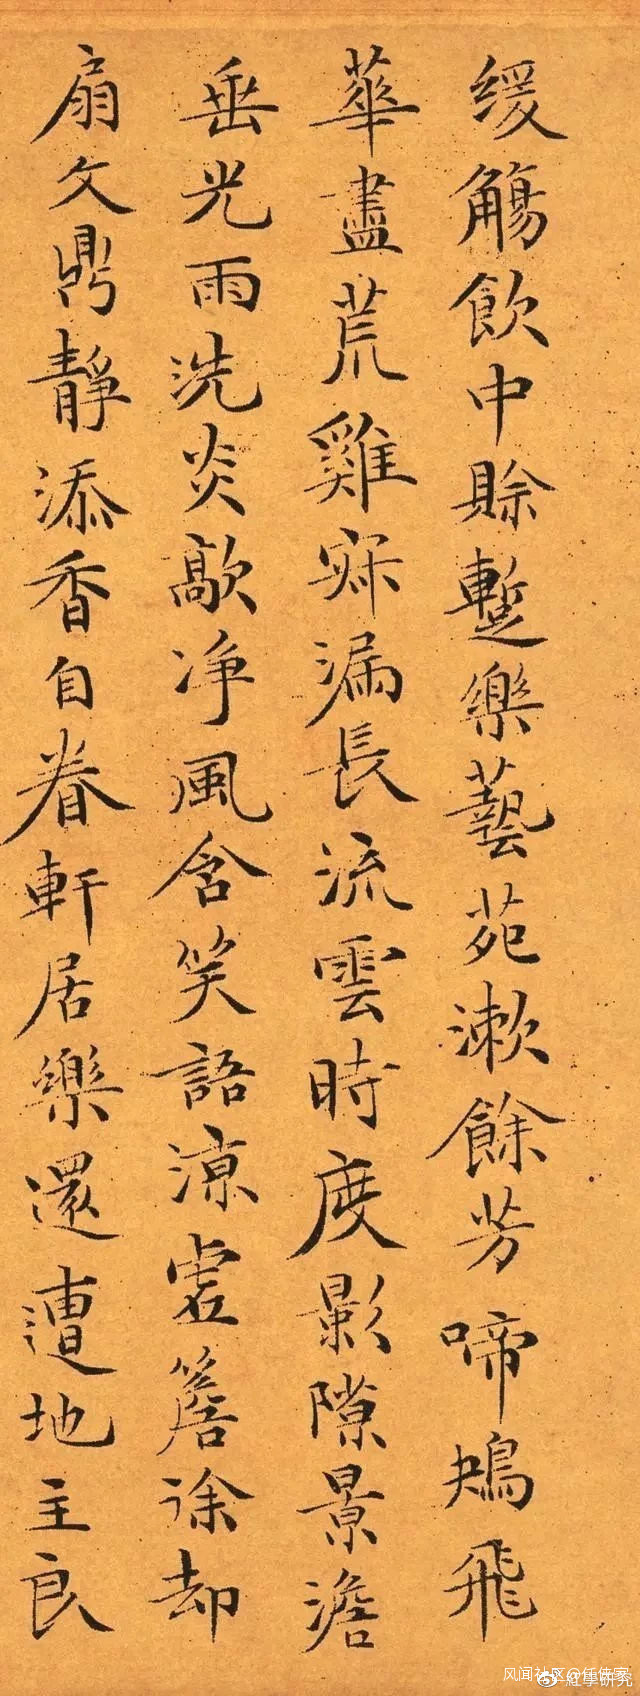 緩觴飲中賒蹔樂藝苑漱餘芳啼鴂飛
華盡荒雞寐漏長流雲時度影隙景澹
垂光雨洗炎歊净風含笑語涼虛簷徐却
扇文鼎靜添香自眷軒居樂還遭地主良
风闻社区@任侠客
红学研究